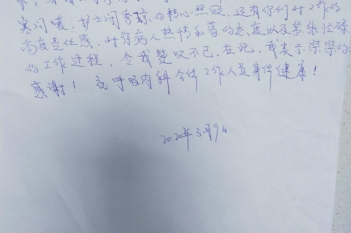 寒问暖,
的精心照顾,还有你们对工作的
高度责任感,对待病人热情和蔼的态度以及紧张忙碌
的工作过程,令我赞叹不已,在此,我表示深深的
感谢!祝呼吸内科全体工作人员身体健康!
2020年3月9日